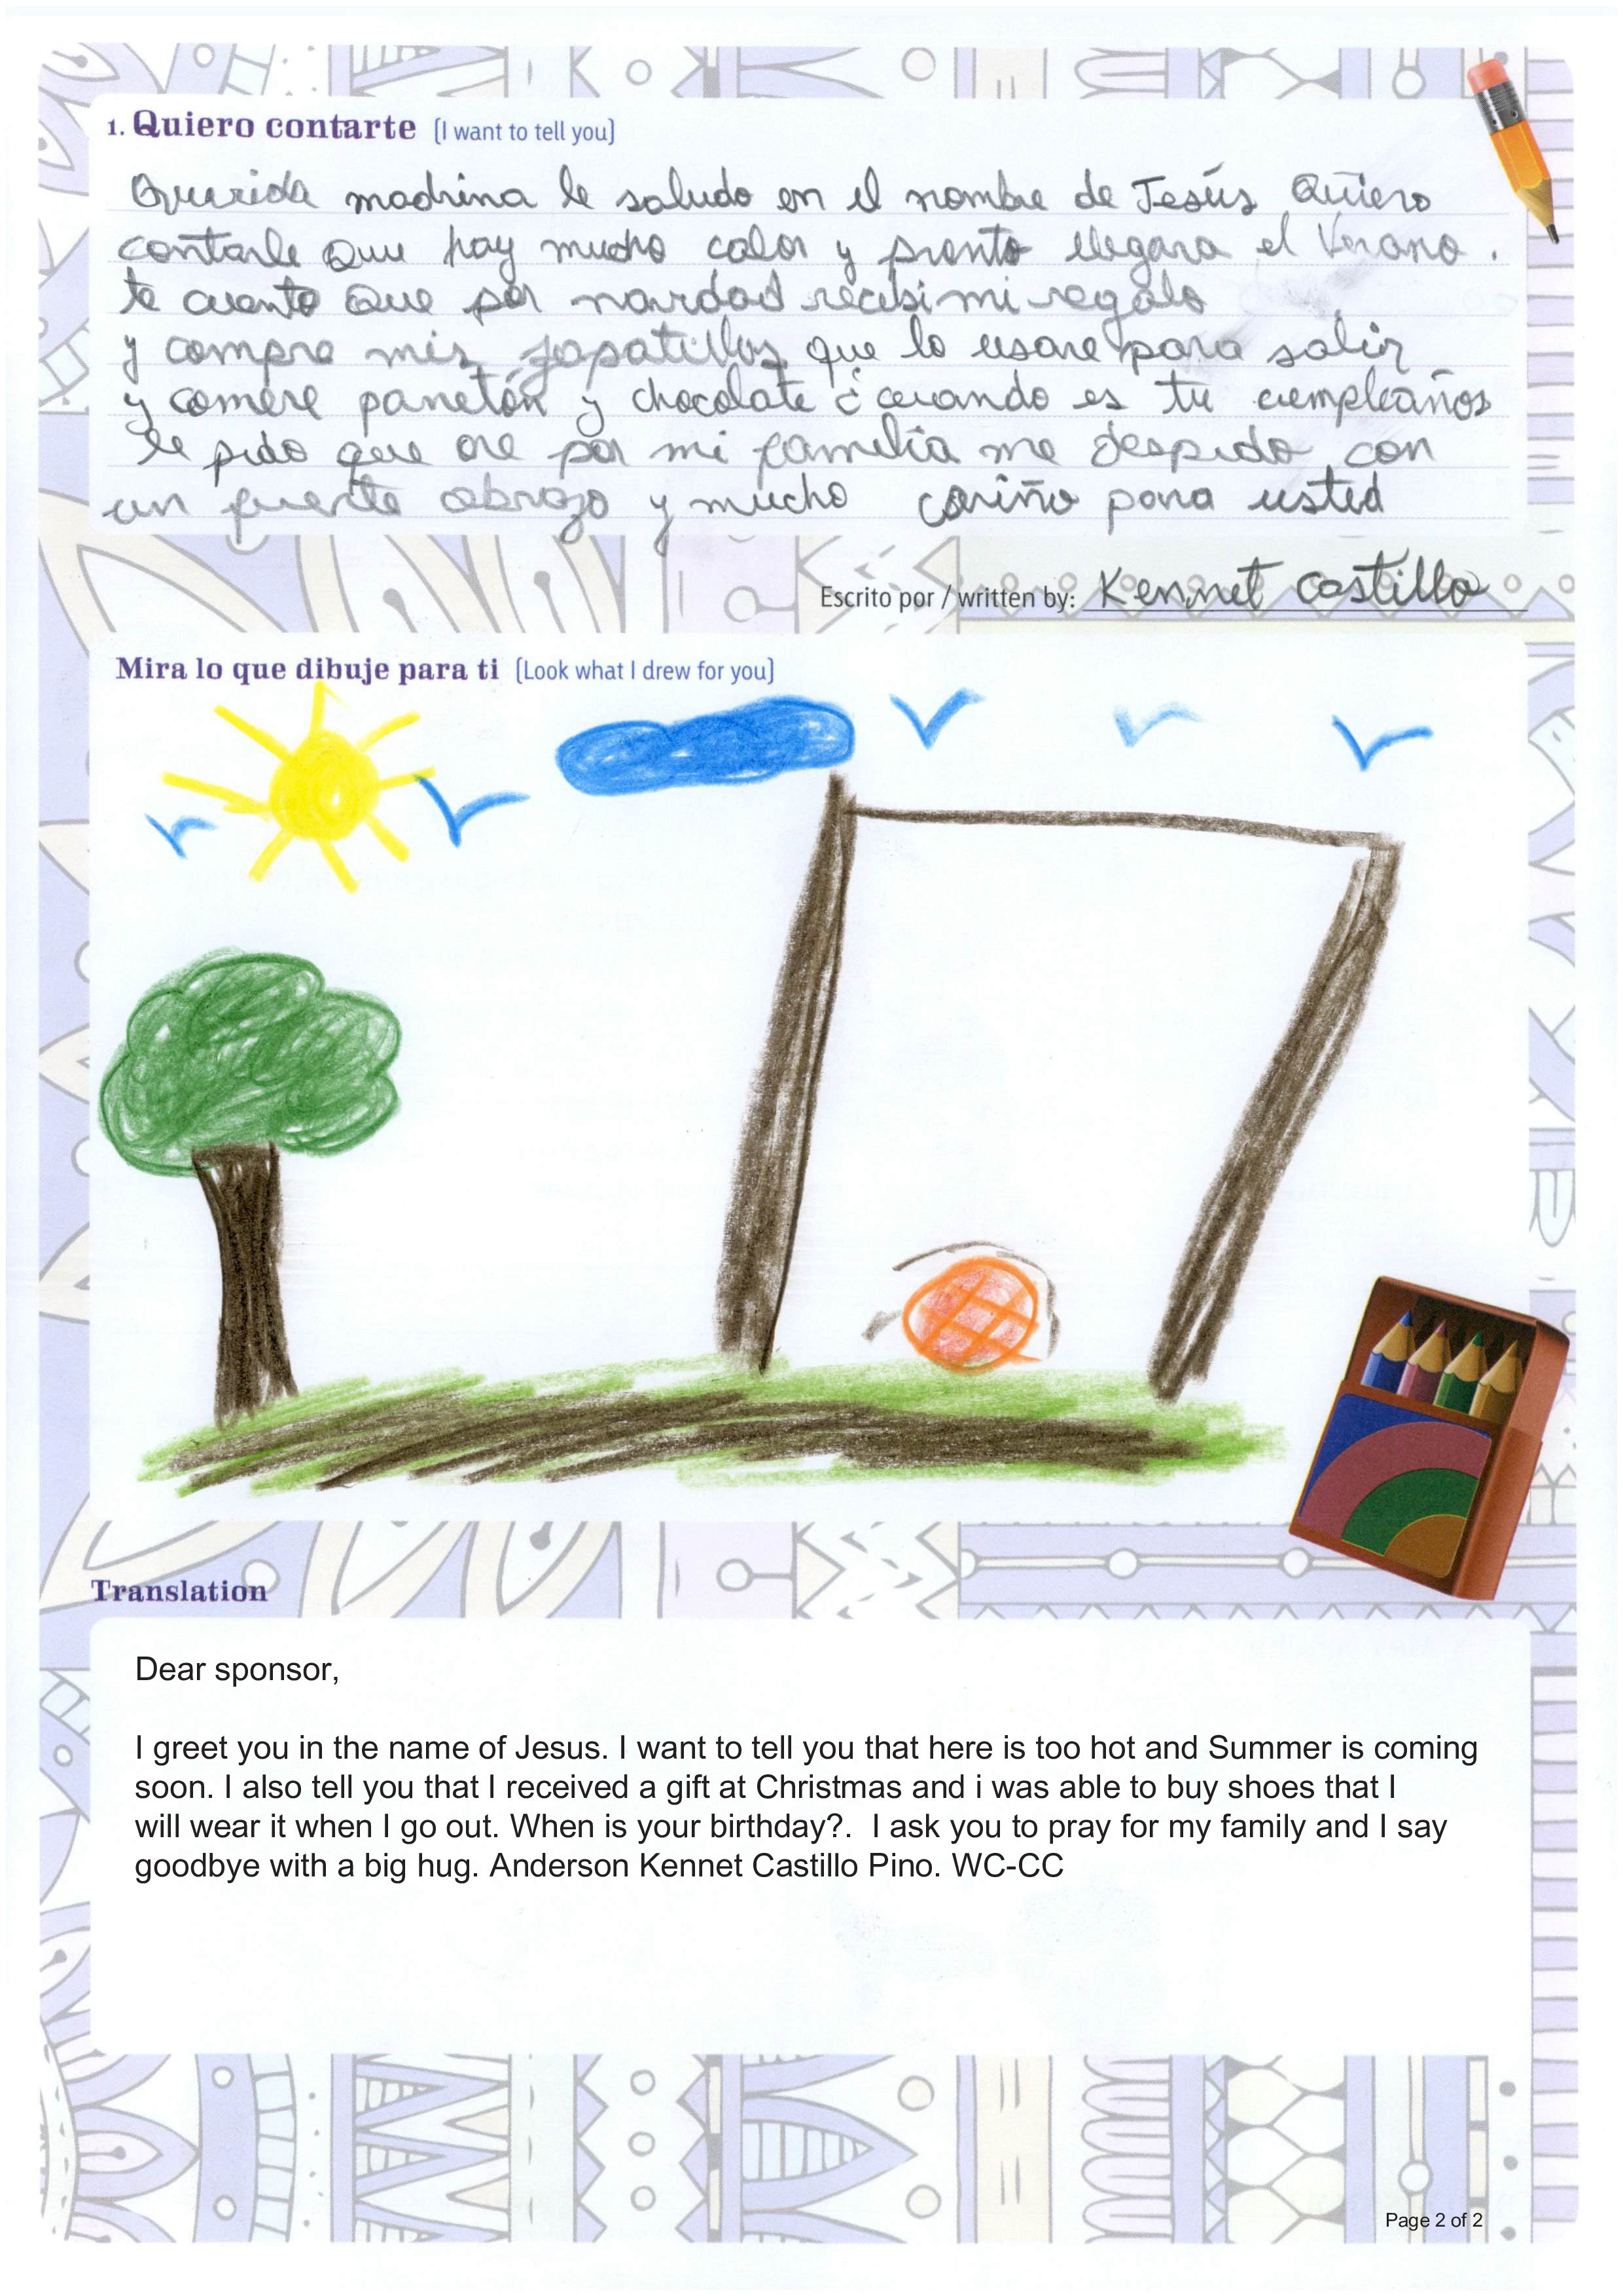 1. Quiero contarte (I want to tell you)
Querida madrina le saludo en el nombre de Jesús Quiero
contarle que hay mucho calor y pronto llegara el Verano.
te cuento que por navidad recibi mi regalo
y compre mis zapatillas que lo usare para salir
y comere panetón y chocolate ¿cuando es tu cumpleaños
le pido que ore por mi familia me despido con
un fuerte abrazo y mucho cariño para usted
Escrito por / written by: Kennet Castillo
Mira lo que dibuje para ti (Look what I drew for you)
Translation
Dear sponsor,
I greet you in the name of Jesus. I want to tell you that here is too hot and Summer is coming
soon. I also tell you that I received a gift at Christmas and i was able to buy shoes that I
will wear it when I go out. When is your birthday?.  I ask you to pray for my family and I say
goodbye with a big hug. Anderson Kennet Castillo Pino. WC-CC
Page 2 of 2